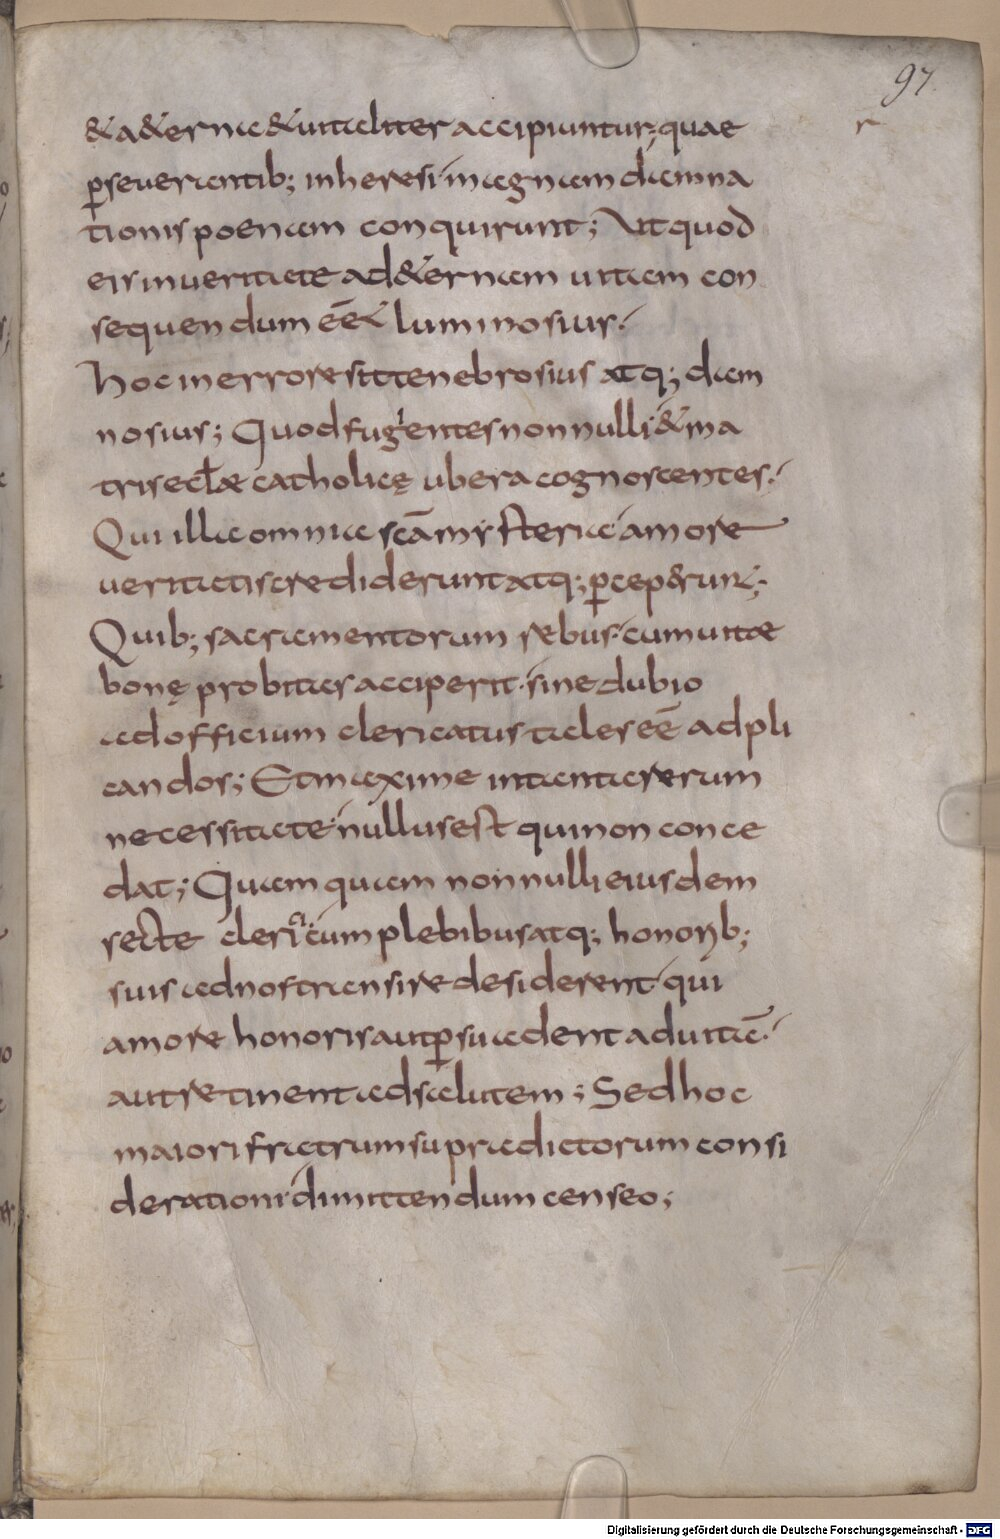 97
& a&erna& uitaliter accipiuntur; quae
p̱seuerantib; in heresi magnam damna
tionis poenam conquirunt; Ut quod
eis in ueritate ad &ernam uitam con
sequendum eē& luminosius.
hoc in errore sit tenebrosius atq; dam
nosius; Quod fugientes nonnulli & ma
tris eclæ catholicę ubera cognoscentes.
Qui illa omnia scā mysteria amore
ueritatis crediderunt atq; p̱ceper̄unt;
Quib; sacramentorum rebus cum uitæ
bonę probitas acciperit. sine dubio
ad officium clericatus tales eē adpli
candos; Et maxime in tanta rerum
necessitate nullus est qui non conce
dat; Quam quam nonnulli eiusdem
secte clerici cum plebibus atq; honorib;
suis ad nos transire desiderent qui
amore honoris aut p̱suadent ad uitā.
aut retinent ad salutem; Sed hoc
maiori fratrum supradictorum consi
derationi dimittendum censeo;
Digitalisierung gefördert durch die Deutsche Forschungsgemeinschaft - DFG